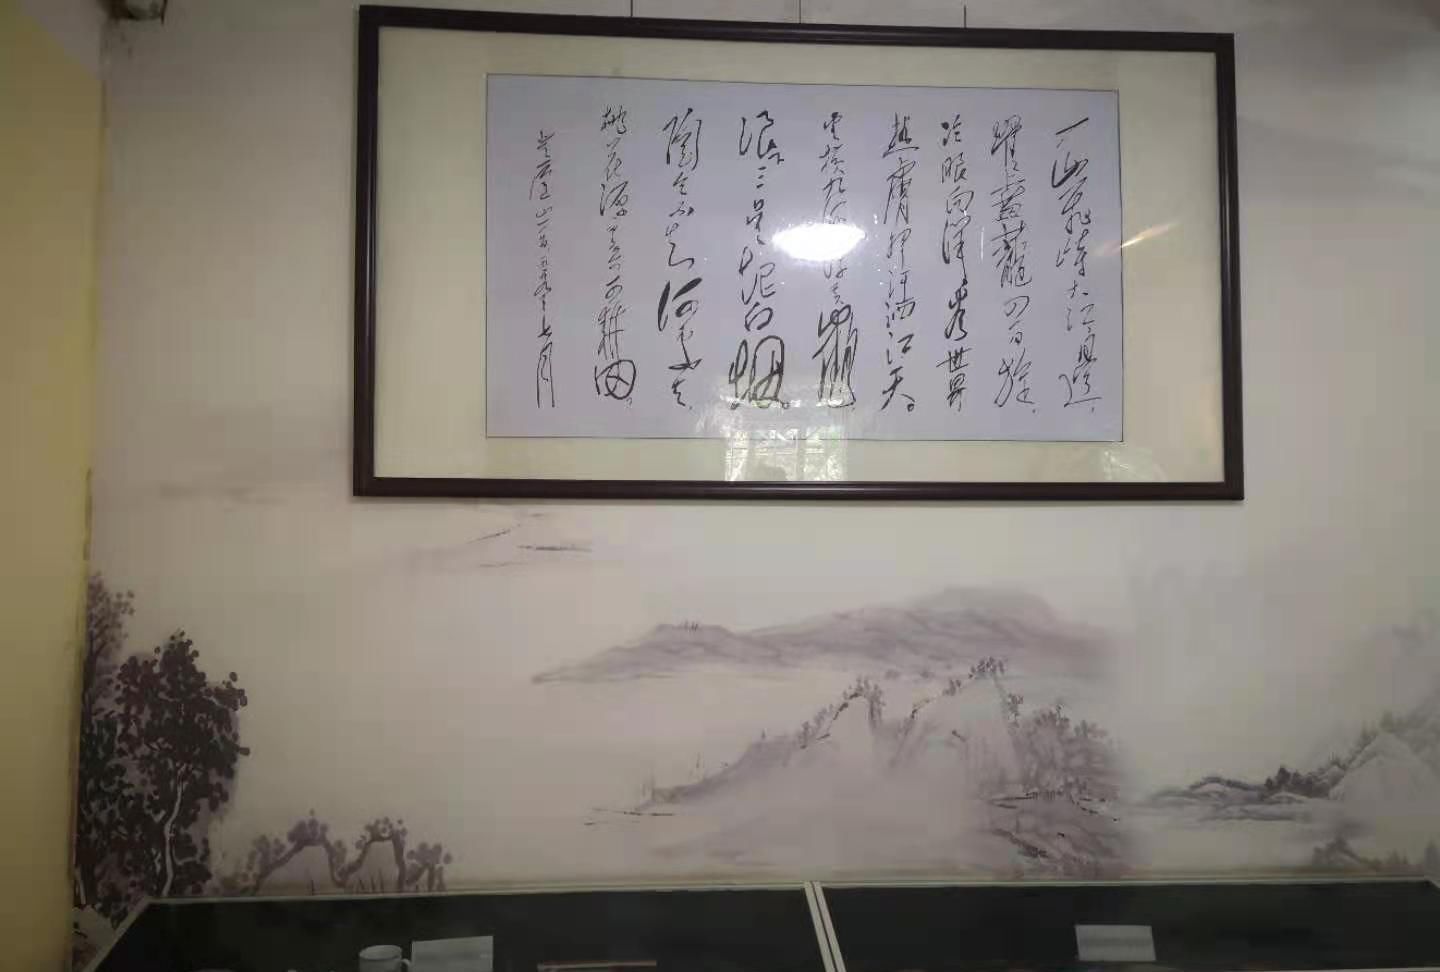 一山飛峙大江邊，
躍上葱蘢四百旋，
冷眼向洋看世界
热膚挥汗洒江天。
雲横九派浮黄鶴，
浪下三吴起白烟。
陶令不知何處去，
桃花源里可耕田，
登庐山一九五九年七月